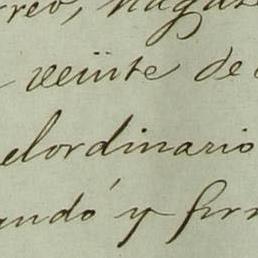 rreo, hagas
veinte de
elordinario
andó y firm